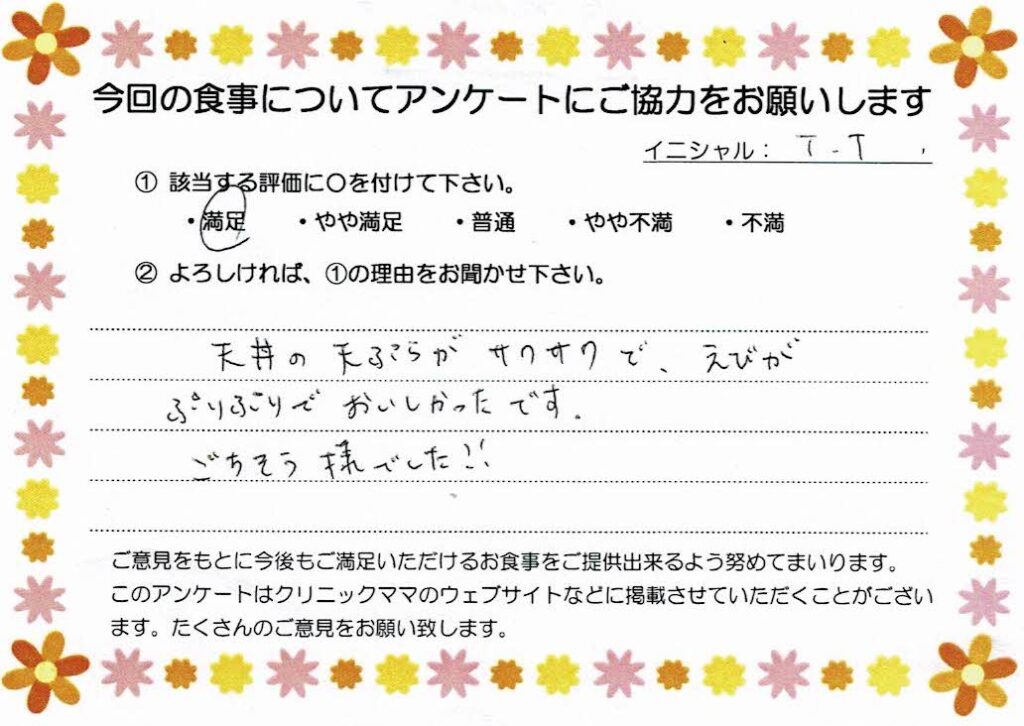 今回の食事についてアンケートにご協力をお願いします
イニシャル： T.T
① 該当する評価に〇を付けて下さい。
・満足 ・やや満足 ・普通 ・やや不満 ・不満
② よろしければ、①の理由をお聞かせ下さい。
天丼の天ぷらがサクサクで、えびが
ぷりぷりでおいしかったです。
ごちそう様でした!!
ご意見をもとに今後もご満足いただけるお食事をご提供出来るよう努めてまいります。
このアンケートはクリニックママのウェブサイトなどに掲載させていただくことがござい
ます。たくさんのご意見をお願い致します。